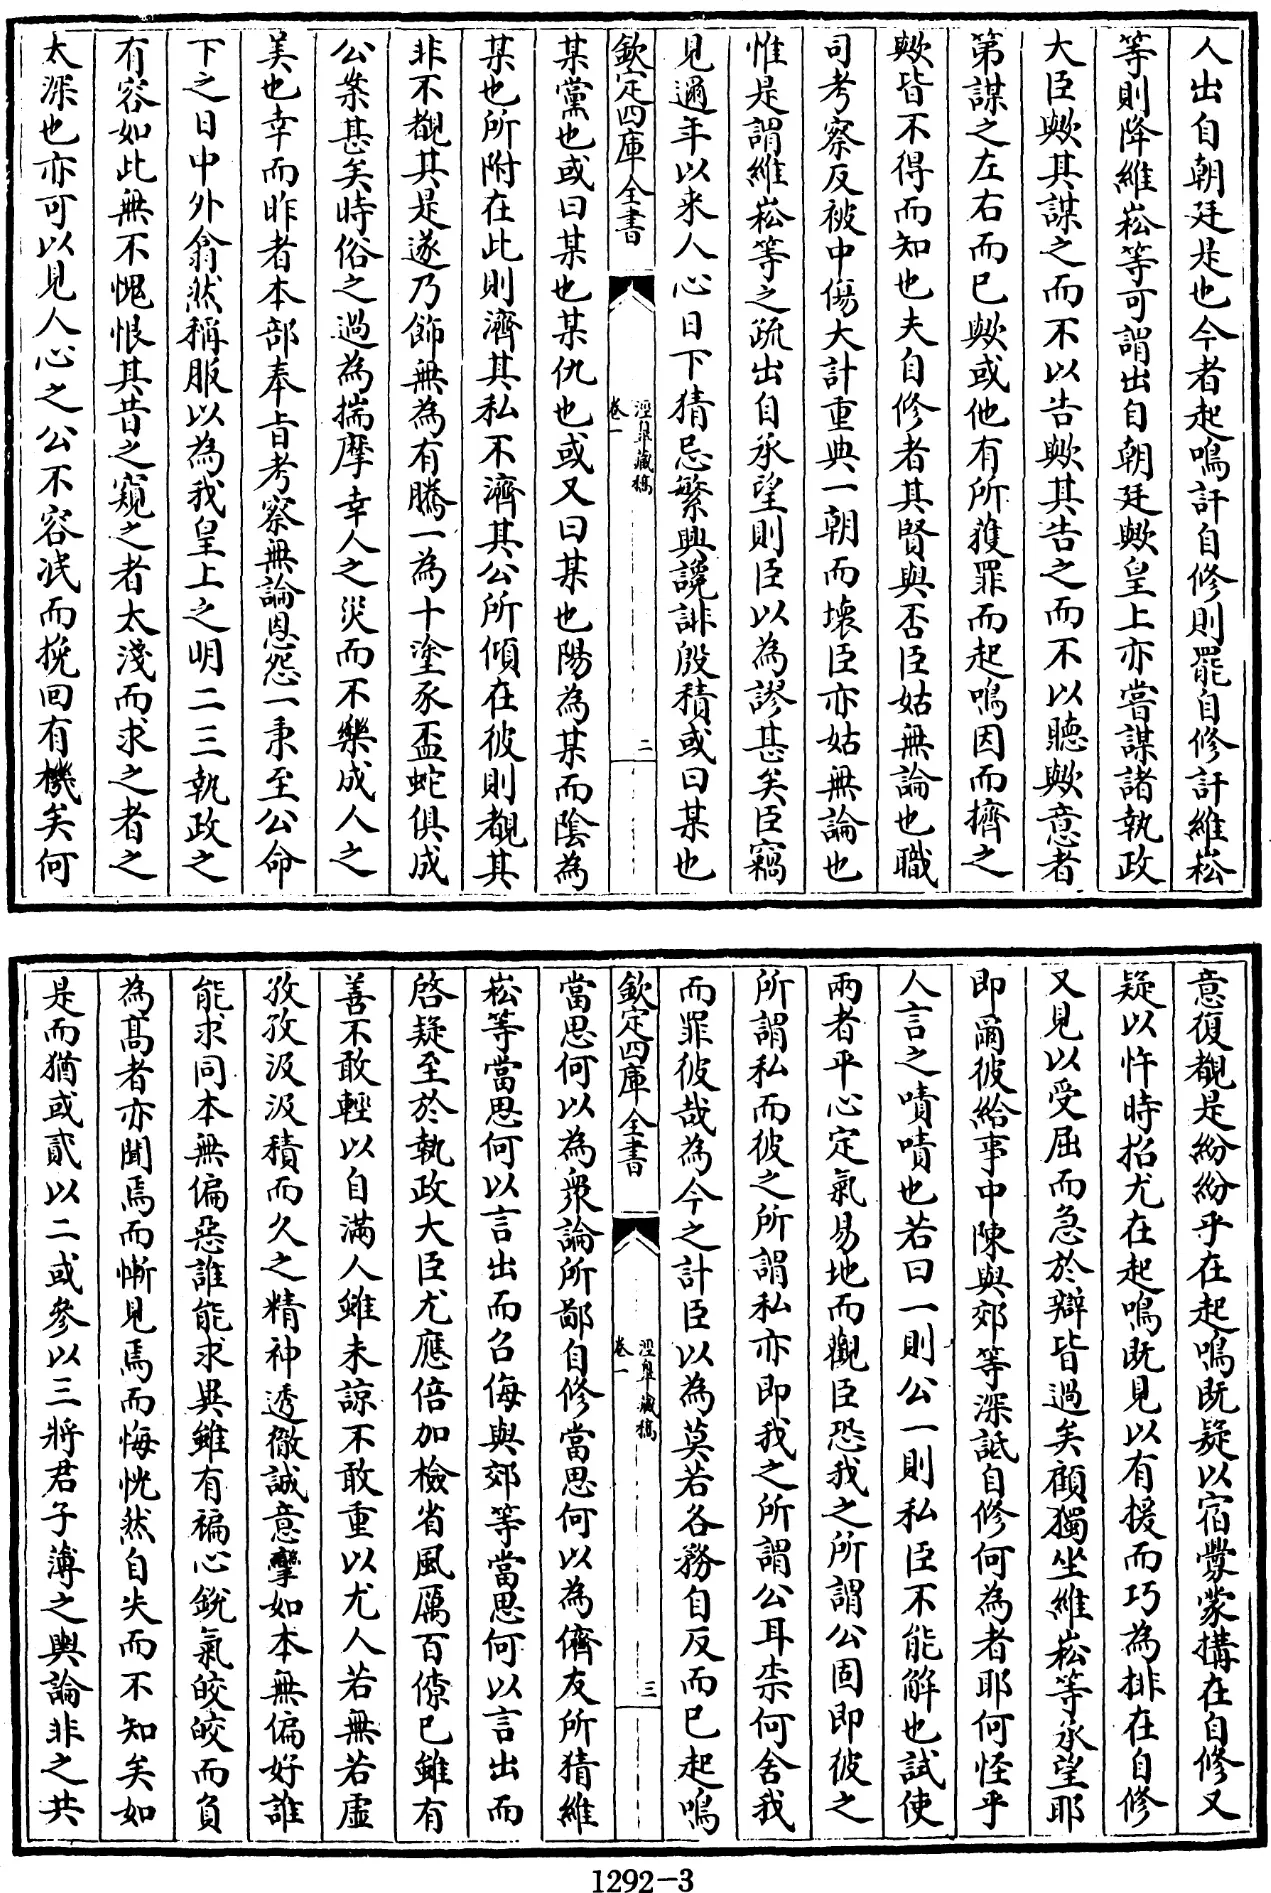 人出自朝廷是也今者起鳴訐自修則罷自修訐維崧
等則降維崧等可謂出自朝廷歟皇上亦嘗謀諸執政
大臣歟其謀之而不以告歟其告之而不以聽歟意者
第謀之左右而已歟或他有所獲罪而起鳴因而擠之
歟皆不得而知也夫自修者其賢與否臣姑無論也職
司考察反被中傷大計重典一朝而壞臣亦姑無論也
惟是謂維崧等之疏出自承望則臣以為謬甚矣臣竊
見邇年以來人心日下猜忌繁興讒誹殷積或曰某也
欽定四庫全書
涇臯藏稿
卷一
二
某黨也或曰某也某仇也或又曰某也陽為某而陰為
某也所附在此則濟其私不濟其公所傾在彼則覩其
非不覩其是遂乃飾無為有騰一為十塗豕盃蛇俱成
公案甚矣時俗之過為揣摩幸人之災而不樂成人之
美也幸而昨者本部奉旨考察無論恩怨一秉至公命
下之日中外翕然稱服以為我皇上之明二三執政之
有容如此無不愧恨其昔之窺之者太淺而求之者之
太深也亦可以見人心之公不容泯而挽回有機矣何
意復覩是紛紛乎在起鳴既疑以宿釁蒙搆在自修又
疑以忤時招尤在起鳴既見以有援而巧為排在自修
又見以受屈而急於辯皆過矣顧獨坐維崧等承望耶
即爾彼給事中陳與郊等深詆自修何為者耶何怪乎
人言之嘖嘖也若曰一則公一則私臣不能解也試使
兩者平心定氣易地而觀臣恐我之所謂公固即彼之
所謂私而彼之所謂私亦即我之所謂公耳柰何舍我
而罪彼哉為今之計臣以為莫若各務自反而已起鳴
欽定四庫全書
涇臯藏稿
卷一
三
當思何以為衆論所鄙自修當思何以為儕友所猜維
崧等當思何以言出而召侮與郊等當思何以言出而
啓疑至於執政大臣尤應倍加檢省風厲百僚已雖有
善不敢輕以自滿人雖未諒不敢重以尤人若無若虛
孜孜汲汲積而久之精神透徹誠意孿如本無偏好誰
能求同本無偏惡誰能求異雖有褊心銳氣皎皎而負
為髙者亦聞焉而慚見焉而悔恍然自失而不知矣如
是而猶或貳以二或參以三將君子薄之輿論非之共
1292-3